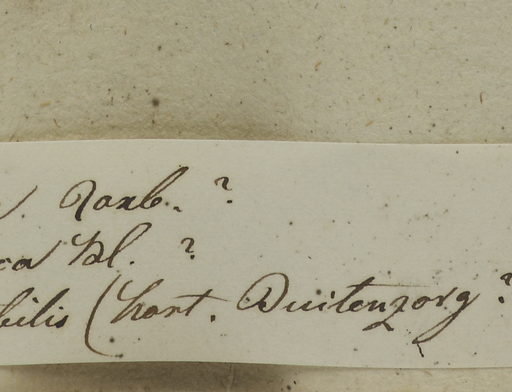 Roxb. ?
ca Bl. ?
bilis (hort. Buitenzorg ?